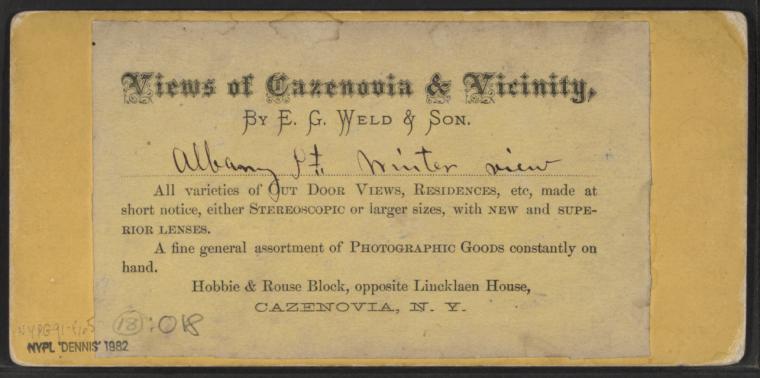 Views of Cazenovia & Vicinity,
By E. G. Weld & Son.
Albany St. Winter view
All varieties of Out Door Views, Residences, etc, made at
short notice, either Stereoscopic or larger sizes, with new and supe-
rior lenses.
A fine general assortment of Photographic Goods constantly on
hand.
Hobbie & Rouse Block, opposite Lincklaen House,
CAZENOVIA, N. Y.
(18) :018
NYPL 'DENNIS' 1982